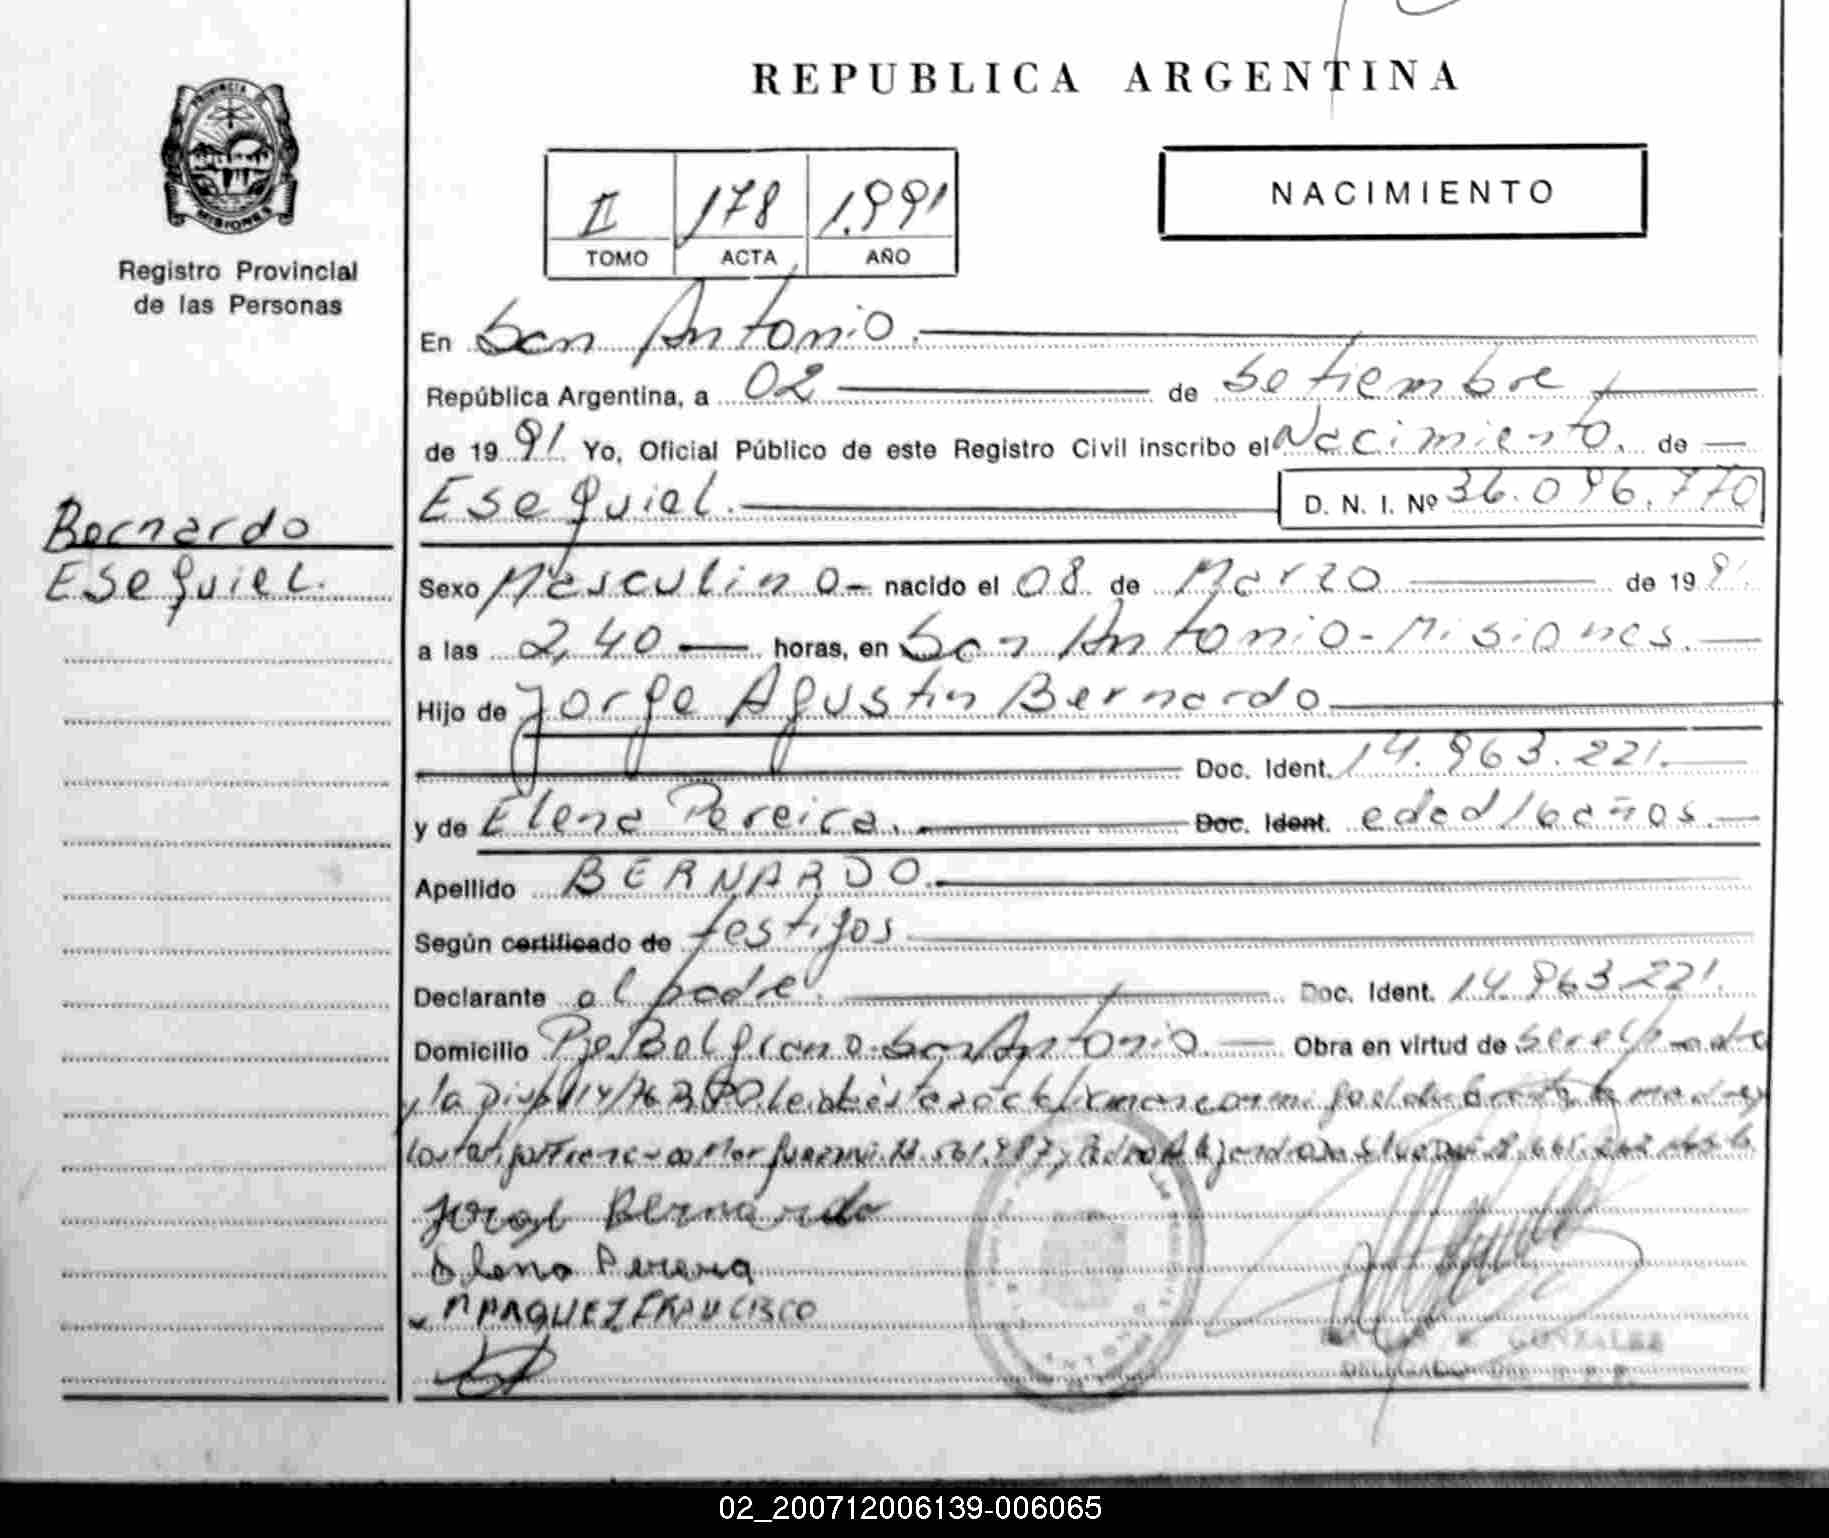 REPUBLICA ARGENTINA
PROVINCIA DE
MISIONES
Registro Provincial
de las Personas
II 178 1.991
TOMO ACTA AÑO
NACIMIENTO
En San Antonio.
República Argentina, a 02 de setiembre
de 19 91 Yo, Oficial Público de este Registro Civil inscribo el Nacimiento. de
Esequiel. D. N. I. Nº 36.096.770
Bernardo
Esequiel.
Sexo Masculino - nacido el 08 de Marzo de 19 91
a las 2,40 horas, en San Antonio - Misiones.
Hijo de Jorge Agustin Bernardo
Doc. Ident. 14.963.221.
y de Elena Pereira. Doc. Ident. edad 16 años.
Apellido BERNARDO.
Según certificado de testigos
Declarante el padre. Doc. Ident. 14.963.221.
Domicilio Pje Belgrano - San Antonio. Obra en virtud de
la
Jorge Bernardo
Elena Pereira
MARQUEZ FRANCISCO
GONZALEZ
DELEGADO
02_200712006139-006065